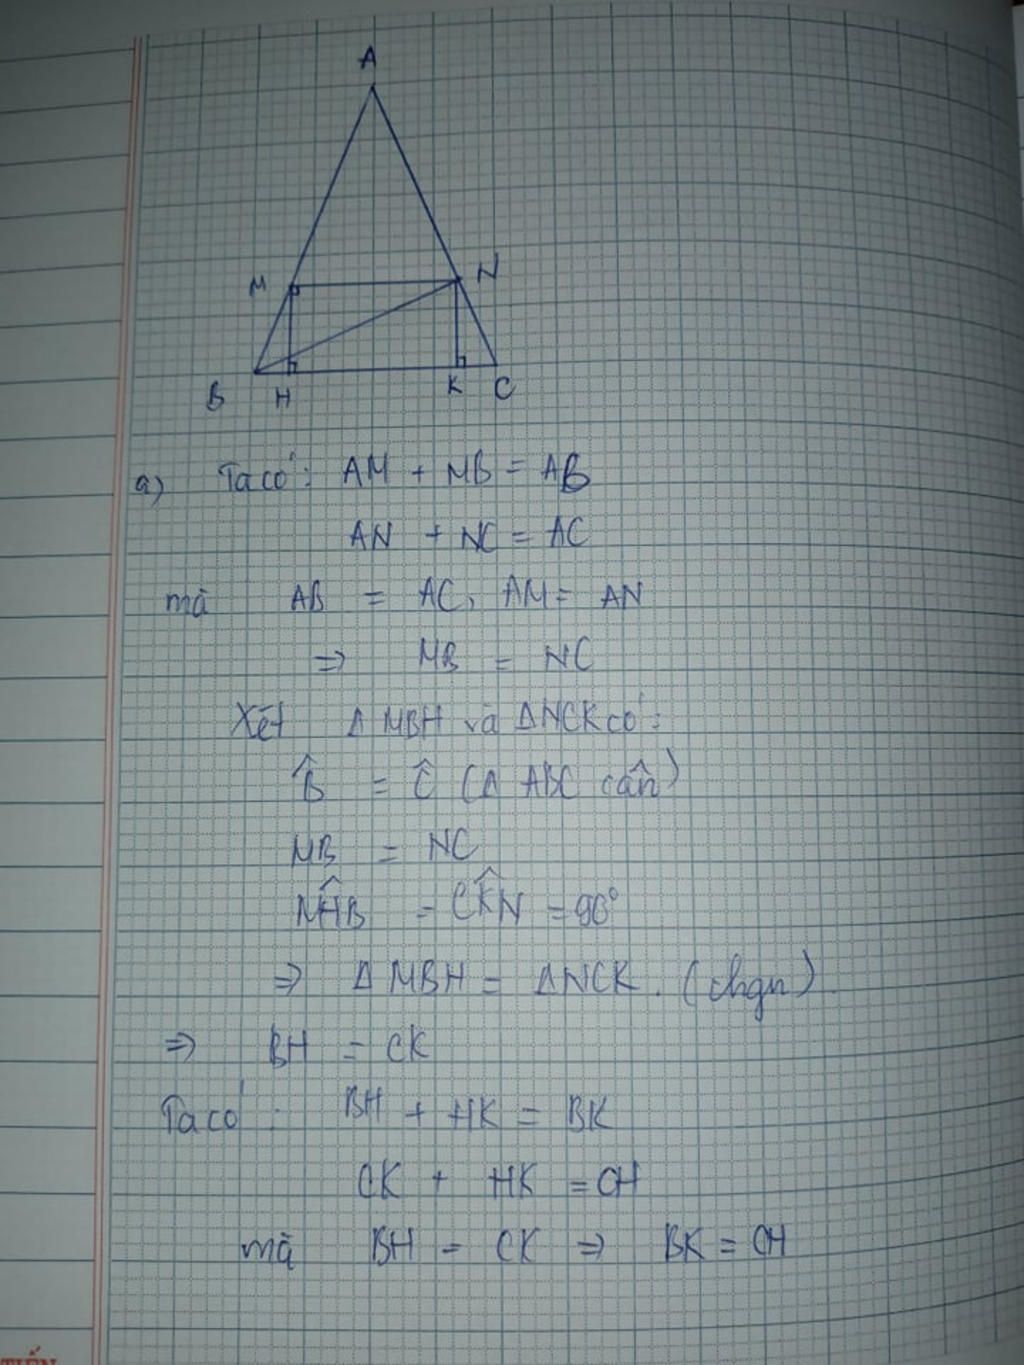 A
M
N
B
H
K
C
a) Ta có: AM + MB = AB
AN + NC = AC
mà AB = AC, AM = AN
⇒ MB = NC
Xét Δ MBH và ΔNCK có:
B̂ = Ĉ (Δ ABC cân)
MB = NC
MĤB = CK̂N = 90°
⇒ Δ MBH = ΔNCK. (chgn).
⇒ BH = CK
Ta có: BH + HK = BK
CK + HK = CH
mà BH = CK ⇒ BK = CH
TIẾN